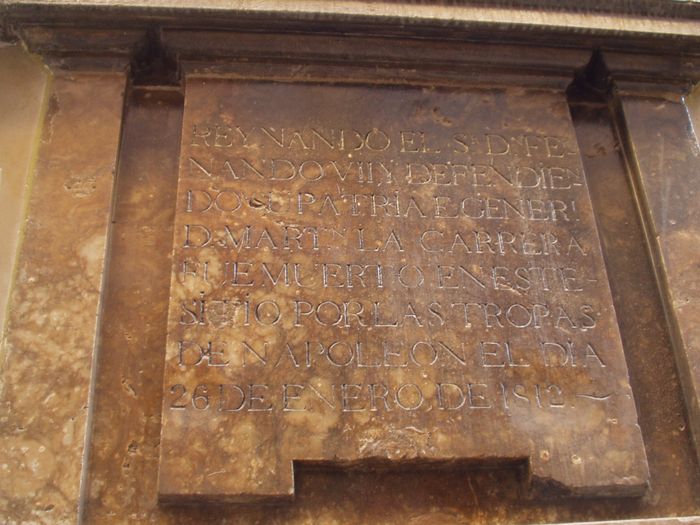 REYNANDO EL Sr. Dn. FE-
NANDO VII Y DEFENDIE-
DO SU PATRIA EL GENERl
D. MARTIN LA CARRERA
FUE MUERTO EN ESTE-
SITIO POR LAS TROPAS
DE NAPOLEON EL DIA
26 DE ENERO DE 1812